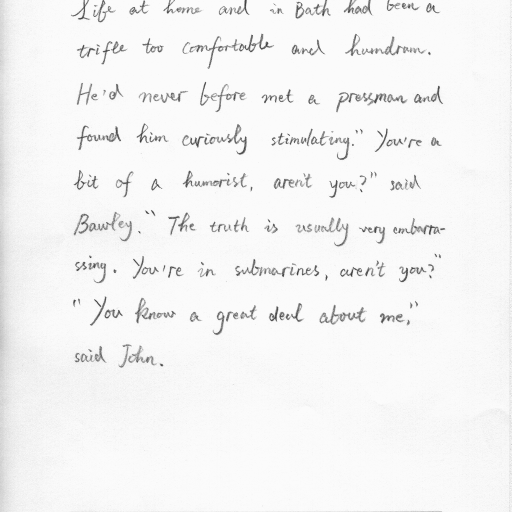 Life at home and in Bath had been a
trifle too comfortable and humdrum.
He'd never before met a pressman and
found him curiously stimulating." You're a
bit of a humorist, aren't you?" said
Bawley." The truth is usually very embarra-
ssing. You're in submarines, aren't you?"
" You know a great deal about me,"
said John.